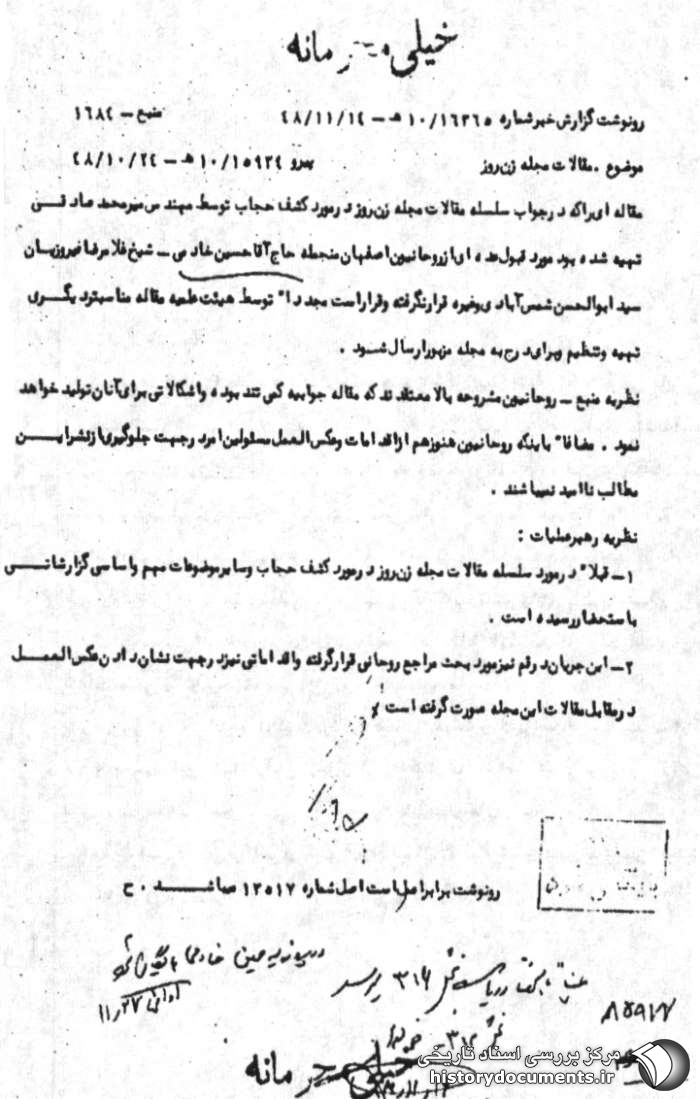 خیلی محرمانه
رونوشت گزارش خبر شماره ۱۰/۱۶۳۶۵ هـ – ۴۸/۱۱/۱۴ منبع – ۱۶۸٤
موضوع . مقالات مجله زن روز پیرو ۱۰/۱۵۹۲۴ هـ – ۴۸/۱۰/۲۴
مقاله ای را که در جواب سلسله مقالات مجله زن روز در مورد کشف حجاب توسط مهندس میرمحمد صادقی
تهیه شده بود مورد قبول عده ای از روحانیون اصفهان منجمله حاج آقا حسین خادمی – شیخ غلامرضا فیروزیان
سید ابوالحسن شمس آبادی وغیره قرار نگرفته وقرار است مجددا" توسط هیئت علمیه مقاله مناسبتر دیگری
تهیه وتنظیم وبرای درج به مجله مزبور ارسال شود .
نظریه منبع – روحانیون مشروحه بالا معتقدند که مقاله جوابیه کمی تند بوده واشکالاتی برای آنان تولید خواهد
نمود . مضافا" باینکه روحانیون هنوز هم از اقدامات وعکس العمل مسئولین امر در جهت جلوگیری از نشر این
مطالب ناامید نمیباشند .
نظریه رهبر عملیات :
۱ – قبلا" در مورد سلسله مقالات مجله زن روز در مورد کشف حجاب وسایر موضوعات مهم واساسی گزارشاتی
باستحضار رسیده است .
۲ – این جریان در قم نیز مورد بحث مراجع روحانی قرار گرفته واقداماتی نیز در جهت نشان دادن عکس العمل
در مقابل مقالات این مجله صورت گرفته است
رونوشت برابر اصل است اصل شماره ۱۳۵۱۷ میباشد . ح
در پرونده حسین خادمی بایگانی شود
۳۱۶
۸۵۹۱۷
خیلی محرمانه
مرکز بررسی اسناد تاریخی
historydocuments.ir